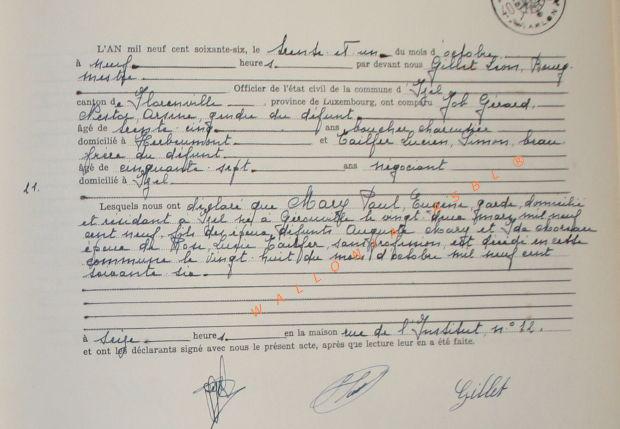 L'AN mil neuf cent soixante-six, le trente et un du mois d'octobre
à neuf heures par devant nous Gillet Léon, Bourg-
mestre
Officier de l'état civil de la commune d'Izel
canton de Florenville, province de Luxembourg, ont comparu Job Gérard,
Nestor, Arsène, gendre du défunt
âgé de trente cinq ans boucher charcutier
domicilié à Herbeumont et Tailfer Lucien, Simon, beau
frère du défunt
âgé de cinquante sept ans négociant
domicilié à Izel
21.
Lesquels nous ont déclaré que Mary Paul, Eugène, garde, domicilié
et résidant à Izel né à Gérouville le vingt deux mars mil neuf
cent neuf, fils des époux défunts Auguste Mary et Ida
époux de Rose, Lucie Tailfer, sans profession, est décédé en cette
commune le vingt huit du mois d'octobre mil neuf cent
soixante six
à seize heures en la maison rue de l'Institut, n° 12.
et ont les déclarants signé avec nous le présent acte, après que lecture leur en a été faite.
Gillet
WALLONIA ASBL ®